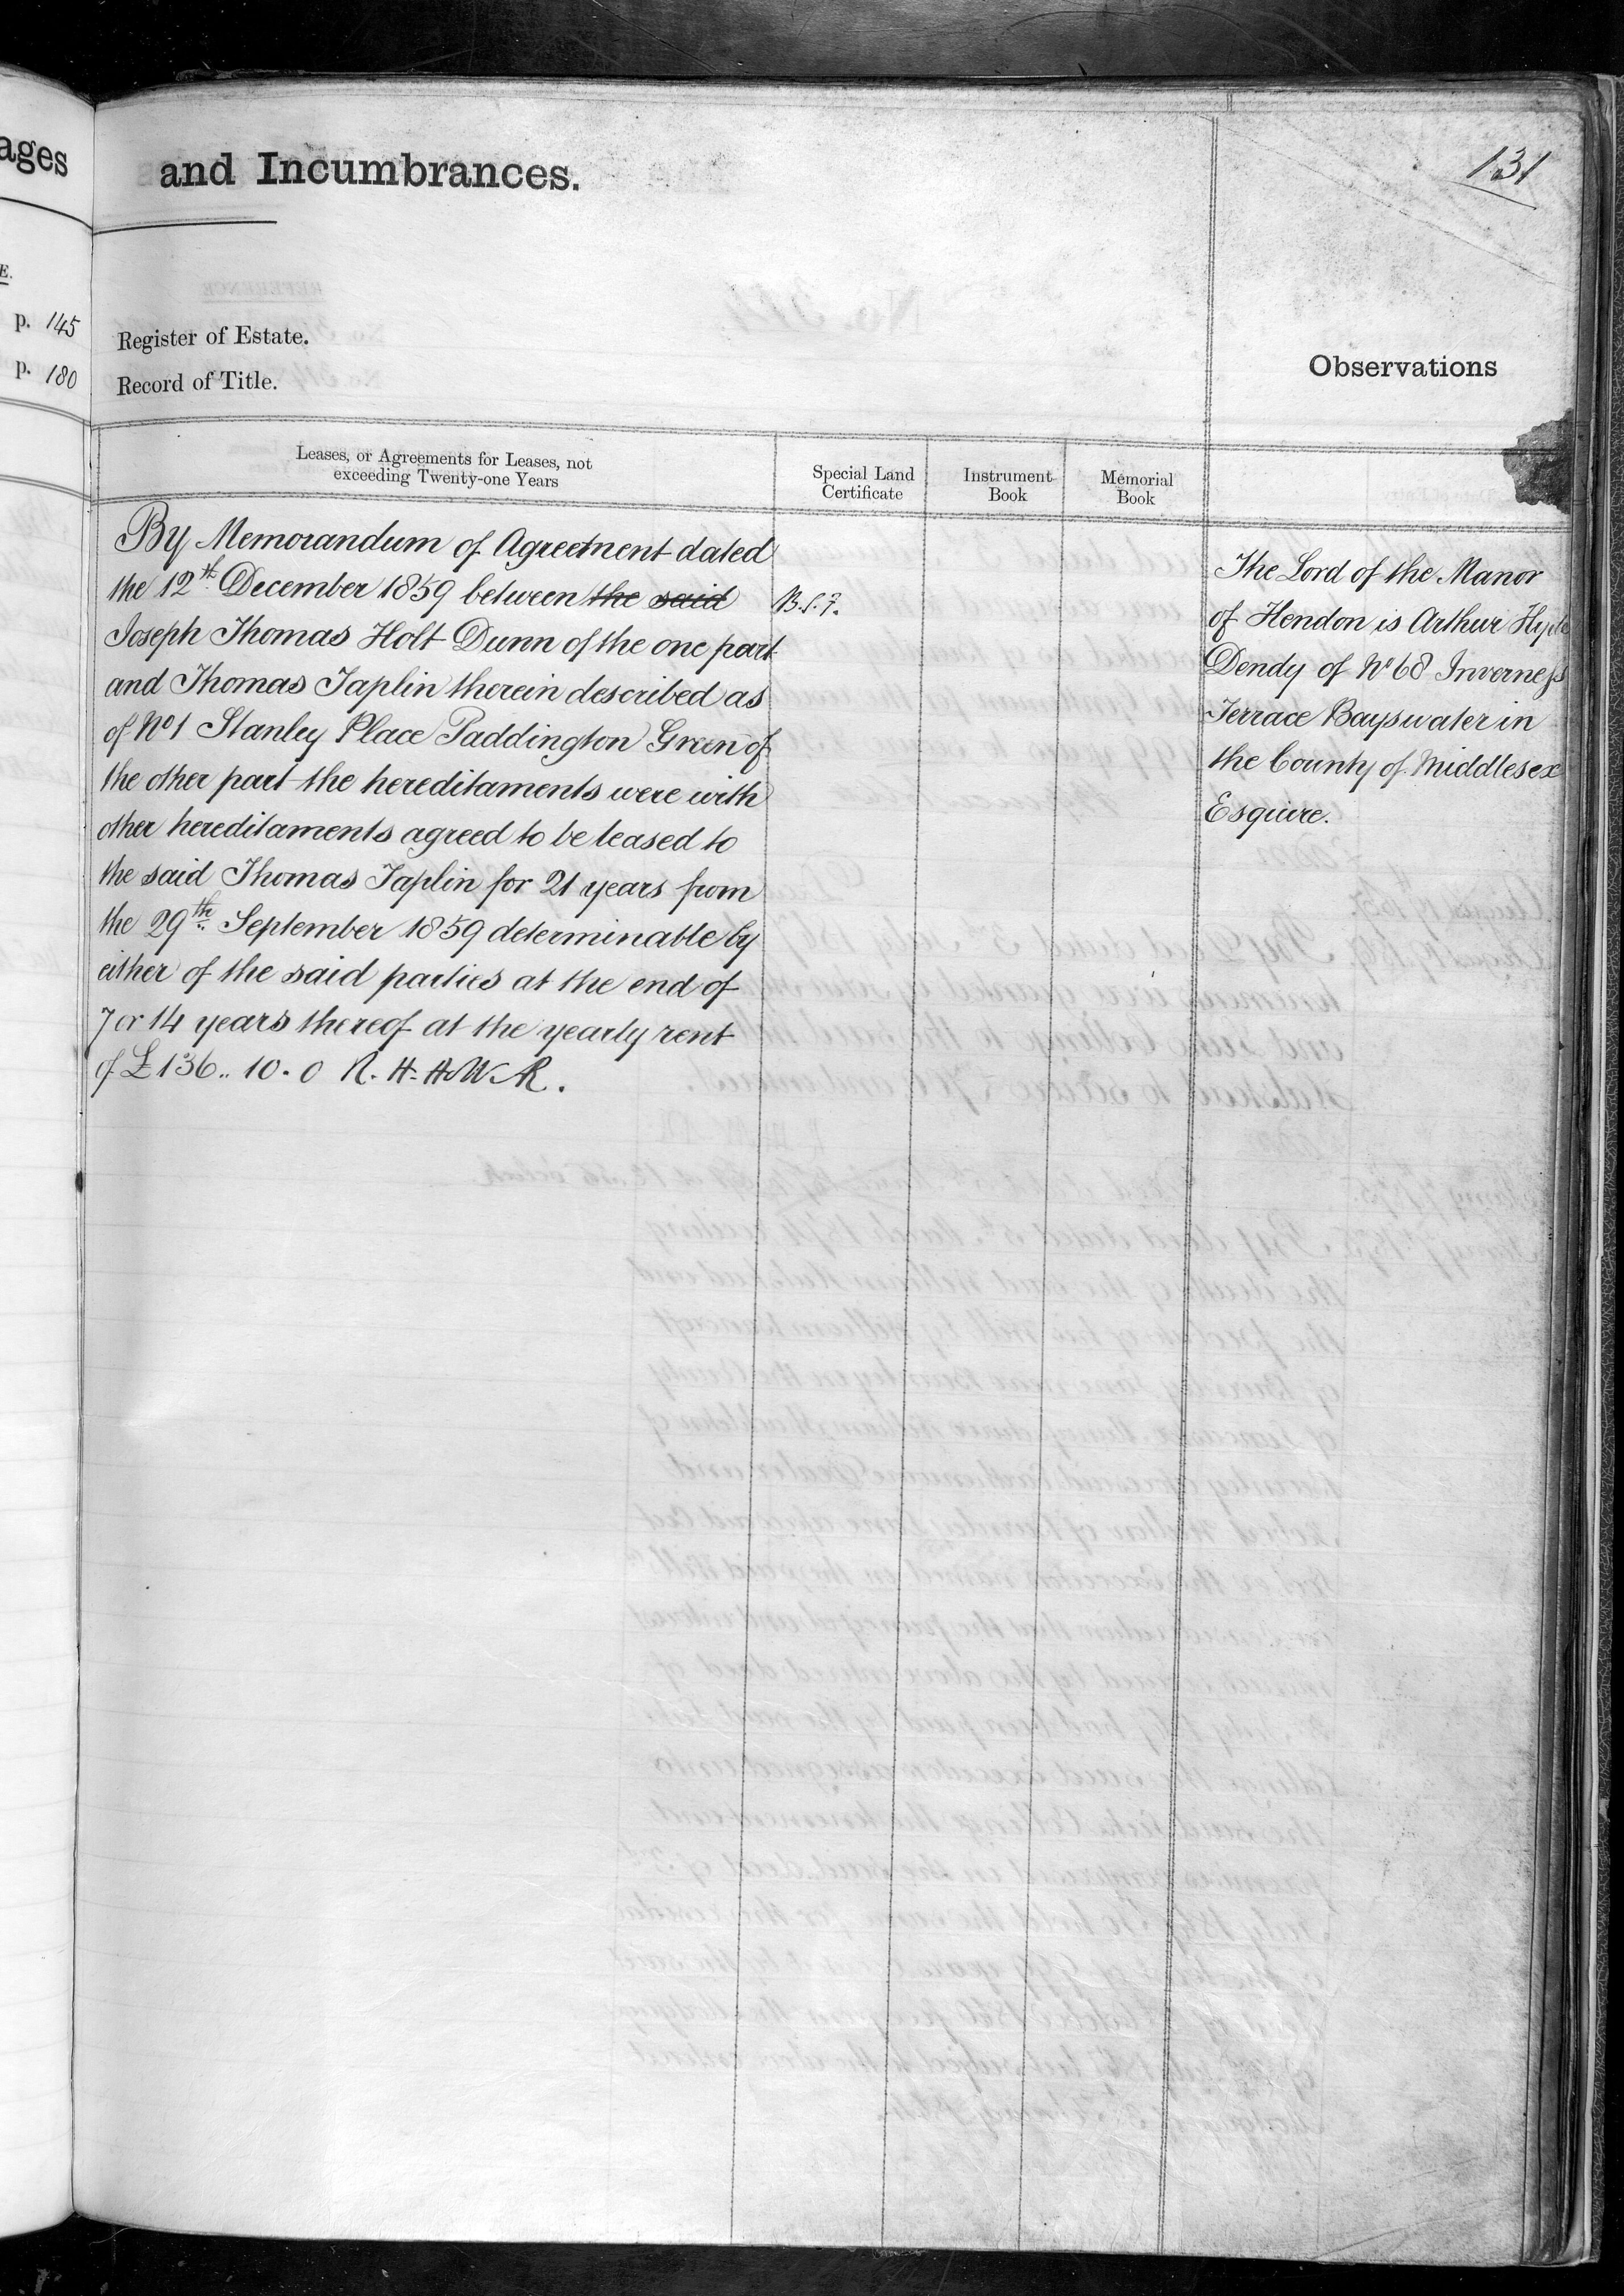 ages
E.
p. 145
p. 180
and Incumbrances.
131
Register of Estate.
Record of Title.
Observations
Leases, or Agreements for Leases, not
exceeding Twenty-one Years
Special Land
Certificate
Instrument
Book
Memorial
Book
By Memorandum of Agreement dated
the 12th December 1859 between the said
Joseph Thomas Holt Dunn of the one part
and Thomas Taplin therein described as
of No 1 Stanley Place Paddington Green of
the other part the hereditaments were with
other hereditaments agreed to be leased to
the said Thomas Taplin for 21 years from
the 29th September 1859 determinable by
either of the said parties at the end of
7 or 14 years thereof at the yearly rent
of £136.. 10. 0 R. H. H. W. R.
The Lord of the Manor
of Hendon is Arthur Hyde
Dendy of No 68 Inverness
Terrace Bayswater in
the County of Middlesex
Esquire.